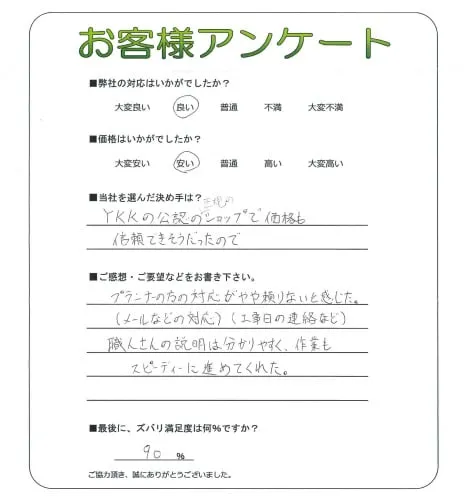 お客様アンケート
■弊社の対応はいかがでしたか？
大変良い 良い 普通 不満 大変不満
■価格はいかがでしたか？
大変安い 安い 普通 高い 大変高い
■当社を選んだ決め手は？
正規の
YKKの公認のショップで価格も
信頼できそうだったので
■ご感想・ご要望などをお書き下さい。
プランナーの方の対応がやや頼りないと感じた。
（メールなどの対応）（工事日の連絡など）
職人さんの説明は分かりやすく、作業も
スピーディーに進めてくれた。
■最後に、ズバリ満足度は何％ですか？
90 ％
ご協力頂き、誠にありがとうございました。